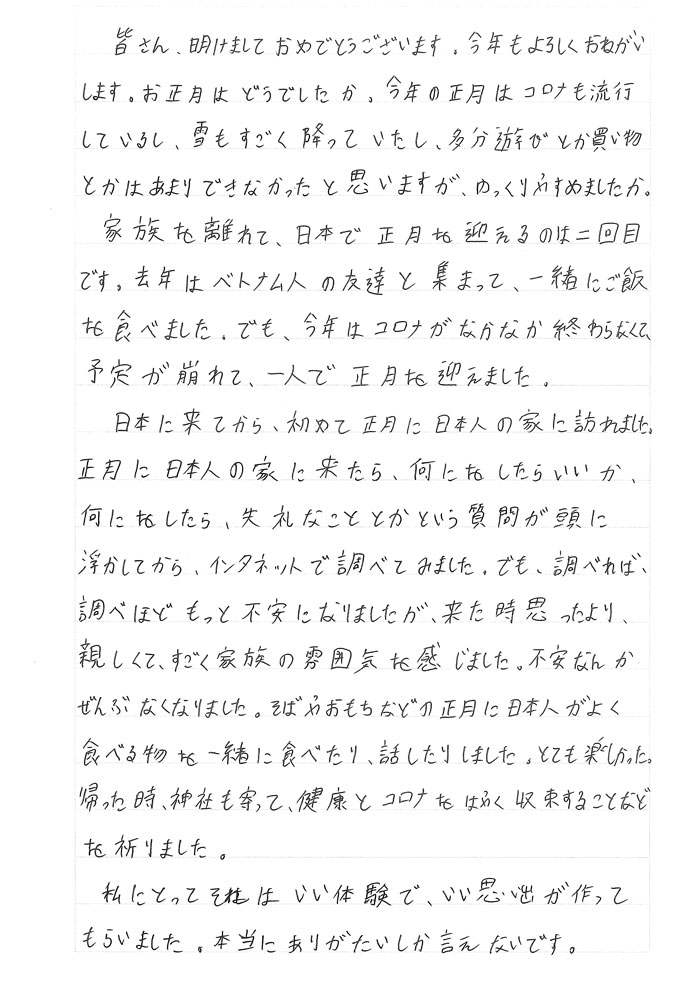 皆さん、明けましておめでとうございます。今年もよろしくおねがい
します。お正月はどうでしたか。今年の正月はコロナも流行
しているし、雪もすごく降っていたし、多分遊びとか買い物
とかはあまりできなかったと思いますが、ゆっくりやすめましたか。
家族を離れて、日本で正月を迎えるのは二回目
です。去年はベトナム人の友達と集まって、一緒にご飯
を食べました。でも、今年はコロナがなかなか終わらなくて、
予定が崩れて、一人で正月を迎えました。
日本に来てから、初めて正月に日本人の家に訪れました。
正月に日本人の家に来たら、何にをしたらいいか、
何にをしたら、失礼なこととかという質問が頭に
浮かしてから、インタネットで調べてみました。でも、調べれば、
調べほどもっと不安になりましたが、来た時思ったより、
親しくて、すごく家族の雰囲気を感じました。不安なんか
ぜんぶなくなりました。そばやおもちなどの正月に日本人がよく
食べる物を一緒に食べたり、話したりしました。とても楽しかった。
帰った時、神社も寄って、健康とコロナをはやく収束することなど
を祈りました。
私にとってそれはいい体験で、いい思い出が作って
もらいました。本当にありがたいしか言えないです。